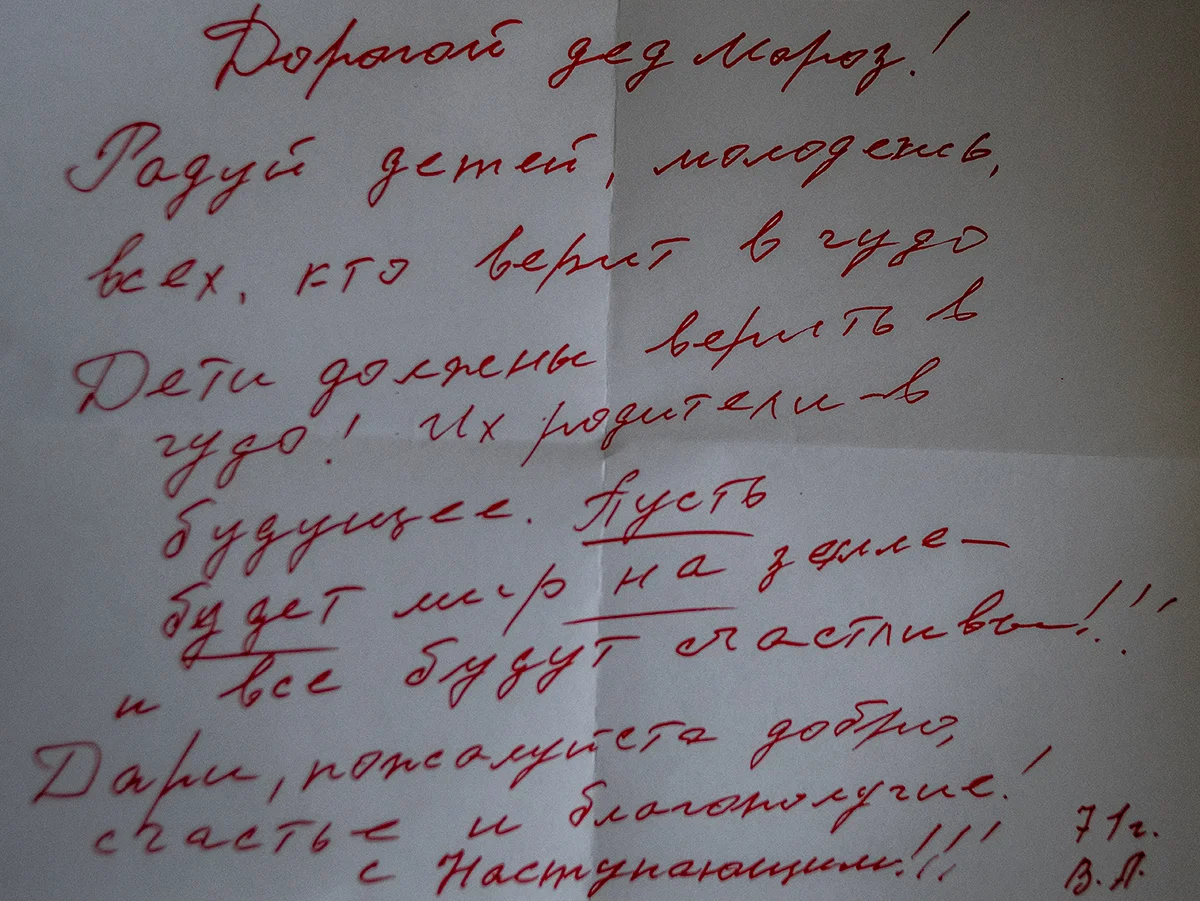 Дорогой дед Мороз!
Радуй детей, молодежь,
всех, кто верит в чудо
Дети должны верить в
чудо! Их родители – в
будущее. Пусть
будет мир на земле –
и все будут счастливы!!!
Дари, пожалуйста добро,
счастье и благополучие!
с Наступающим!!!
71г.
В. А.